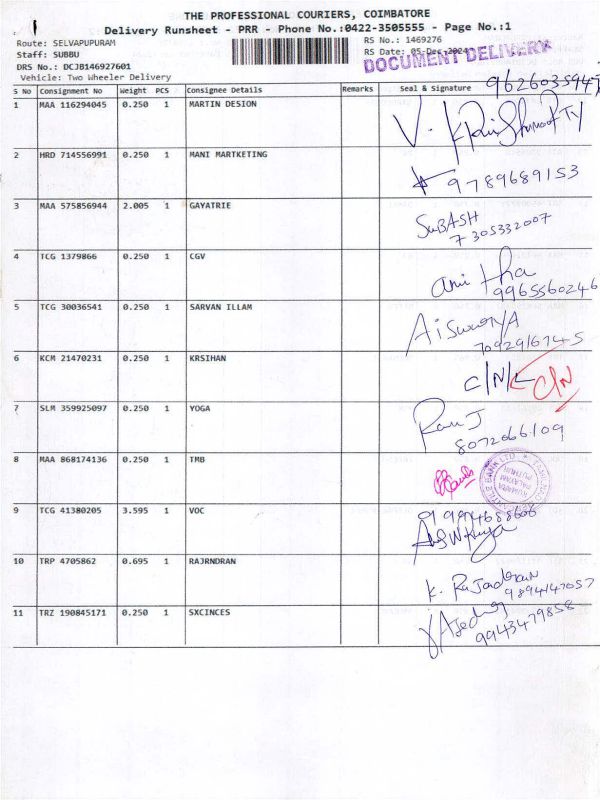 THE PROFESSIONAL COURIERS, COIMBATORE
Delivery Runsheet - PRR - Phone No.:0422-3505555 - Page No.:1
Route: SELVAPUPURAM RS No.: 1469276
Staff: SUBBU RS Date: 05-Dec-2024
DOCUMENT DELIVERY
DRS No.: DCJB146927601
Vehicle: Two Wheeler Delivery
S No Consignment No Weight PCS Consignee Details Remarks Seal & Signature
1 MAA 116294045 0.250 1 MARTIN DESION
2 HRD 714556991 0.250 1 MANI MARTKETING 9789689153
3 MAA 575856944 2.005 1 GAYATRIE SuBASH
7305332007
4 TCG 1379866 0.250 1 CGV
9965560246
5 TCG 30036541 0.250 1 SARVAN ILLAM AiswaryA
7092916745
6 KCM 21470231 0.250 1 KRSIHAN C/N/L C/N
7 SLM 359925097 0.250 1 YOGA
8072066109
8 MAA 868174136 0.250 1 TMB
9 TCG 41380205 3.595 1 VOC
10 TRP 4705862 0.695 1 RAJRNDRAN K. Rajadran
9894147057
11 TRZ 190845171 0.250 1 SXCINCES
9943479858